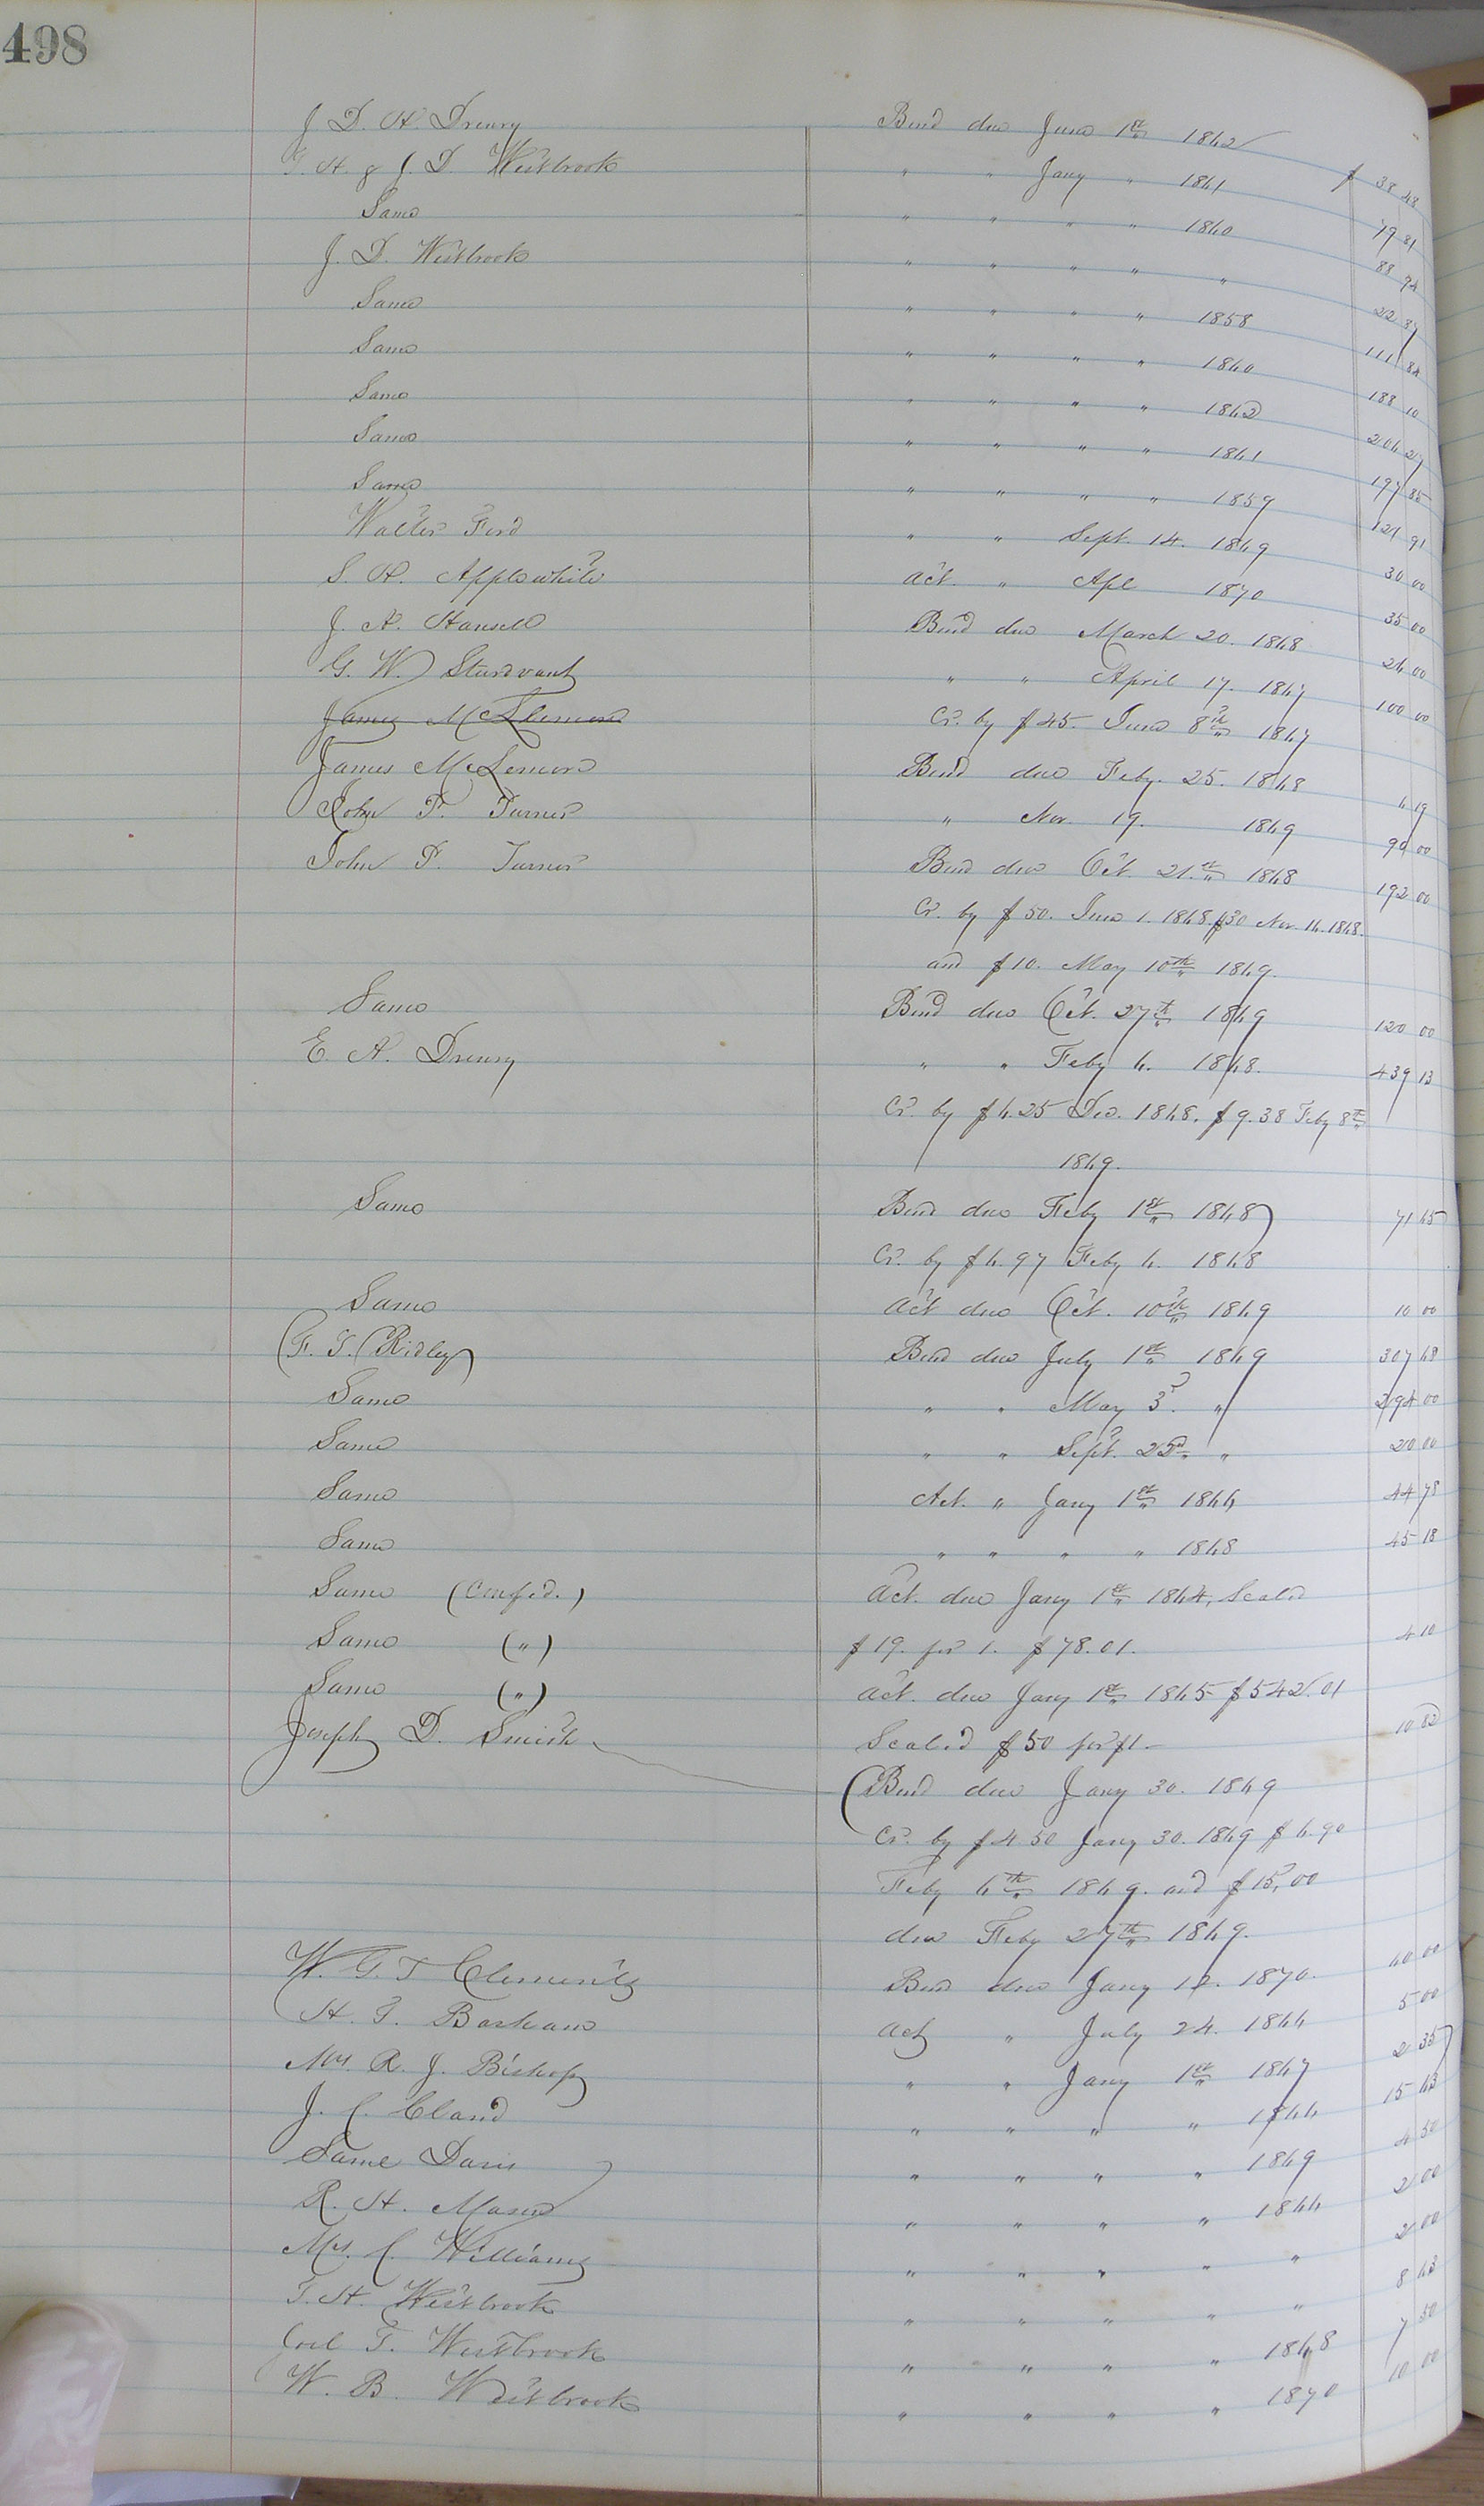 498
J. D. H. Drewry Bond due June 1st 1862 $ 38 48
T. H. & J. D. Westbrook " " Jany " 1861 79 81
Same " " " " 1860 88 94
J. D. Westbrook " " " " " 22 87
Same " " " " 1858 111 84
Same " " " " 1860 188 10
Same " " " " 1862 206 27
Same " " " " 1861 197 85
Same " " " " 1859 121 91
Walter Ford " " Sept. 14. 1869 30 00
S. H. Applewhite Act. " Apl 1870 35 00
J. A. Hansell Bond due March 20. 1868 26 00
G. W. Sturdvant " " April 17. 1867 100 00
James McLemore Cr. by $45. June 8th 1867
James McLemore Bond due Feby. 25. 1868 6 19
John F. Turner " Nov. 19. 1869 90 00
John F. Turner Bond due Oct. 21st 1868 192 00
Cr. by $50. June 1. 1868. $30 Nov. 16. 1868.
and $10. May 10th 1869.
Same Bond due Oct. 27th 1869 120 00
E. A. Drewry " " Feby 6. 1868. 439 13
Cr. by $6.25 Dec. 1868. $9.38 Feby 8th
1869.
Same Bond due Feby 1st 1868 71 65
Cr. by $6.97 Feby 6. 1868
Same Act due Oct. 10th 1869 10 00
F. T. Ridley Bond due July 1st 1869 307 68
Same " " May 3d. " 294 00
Same " " Sept. 23d " 20 00
Same Act. " Jany 1st 1866 44 78
Same " " " " 1868 45 18
Same (Confed.) Act. due Jany 1st 1864, Scaled
Same (") $19. for 1. $78.01. 4 10
Same (") Act. due Jany 1st 1865 $542.01
Joseph D. Smith Scaled $50 for $1 10 82
Bond due Jany 30. 1869
Cr. by $4.50 Jany 30. 1869 $6.90
Feby 6th 1869. and $15.00
due Feby 27th 1869.
W. G. T Clements Bond due Jany 12. 1870. 60 00
H. T. Barham Act " July 24. 1866 5 00
Mrs. R. J. Bishop " " Jany 1st 1867 2 35
J. C. Claud " " " " 1866 15 63
Saml Davis " " " " 1869 4 50
R. H. Mason " " " " 1866 2 00
Mrs. C. Williams " " " " " 2 00
T. H. Westbrook " " " " " 8 63
Joel T. Westbrook " " " " 1868 7 50
W. B. Westbrook " " " " 1870 10 00